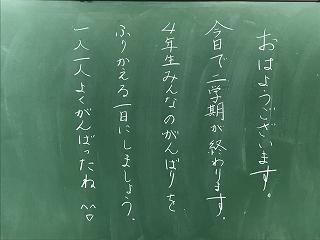 おはようございます。
今日で二学期が終わります。
4年生みんなのがんばりを
ふりかえる一日にしましょう。
一人一人よくがんばったね ^^